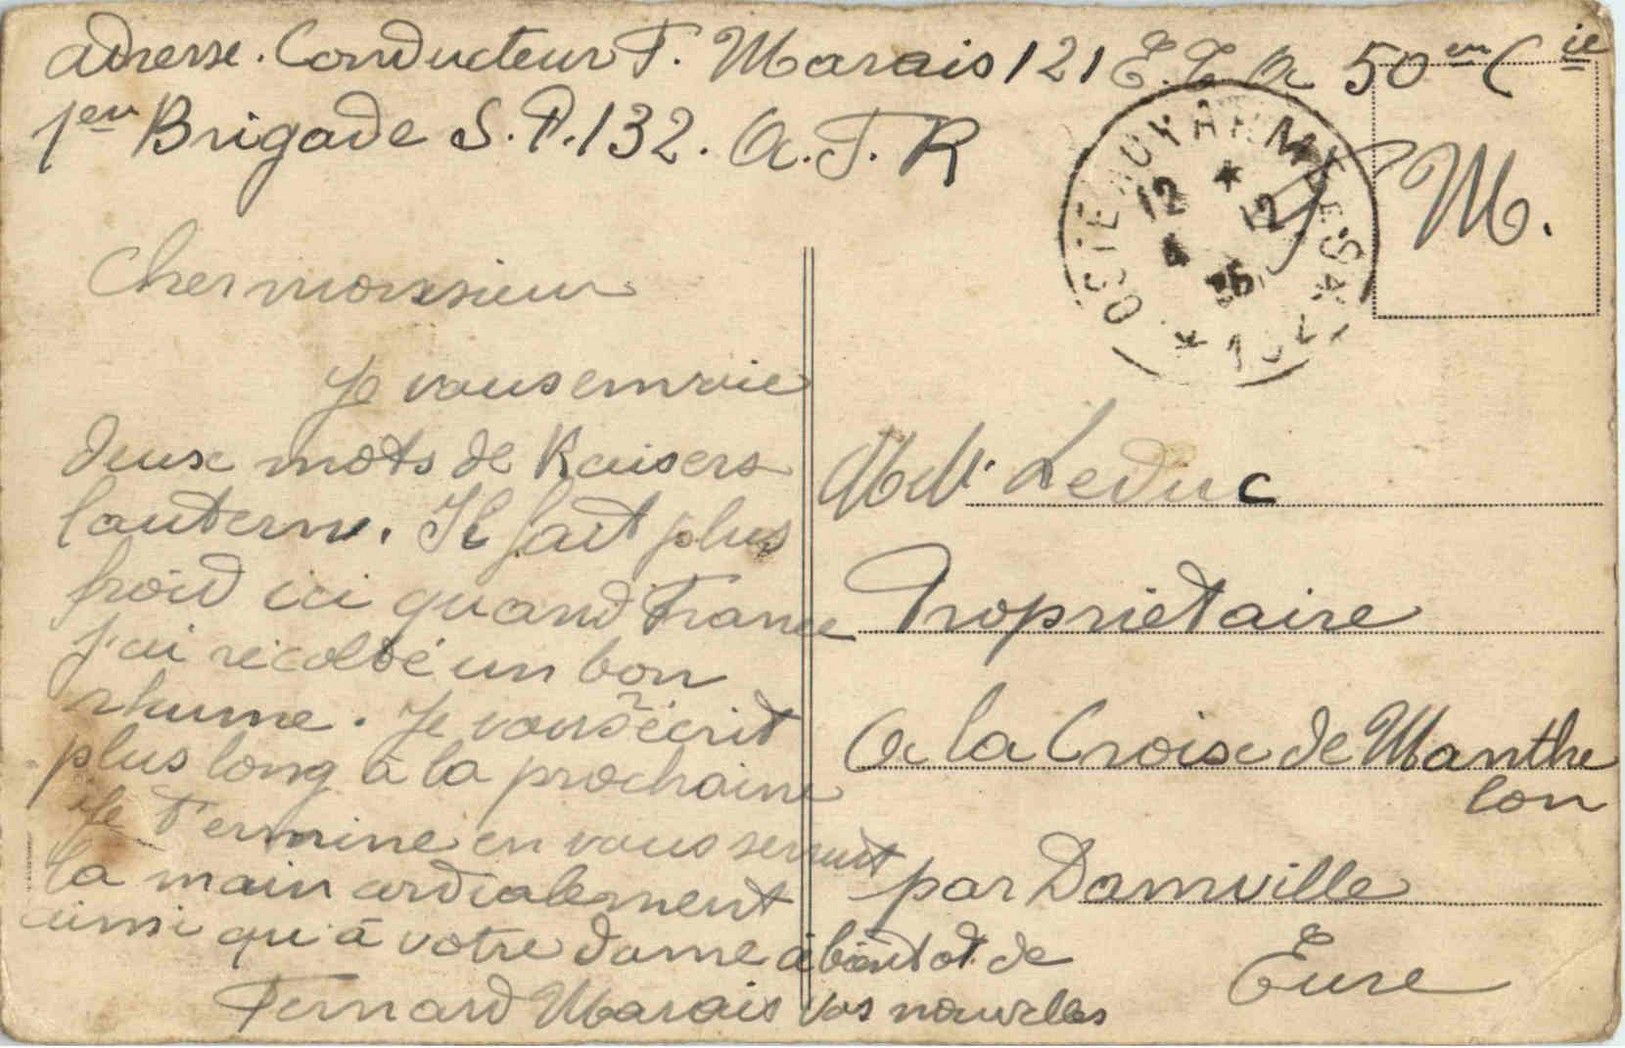 adresse. Conducteur F. Marais 121 E. T. a 50en Cie
1er Brigade S.P.132. A.F.R
F M.
POSTE AUX ARMEES
12 * 12
4 25
* 132 *
Cher monsieur
Je vous emvoie
deux mots de Kaisers
lautern. Il fait plus
froid ici quand France
j'ai récolté un bon
rhume. Je vous écrit
plus long a la prochaine
Je termine en vous serrant
la main cordialement
ainsi qu'à votre dame à bientot de
Fernard Marais vos nouvelles
Leduc
Propriétaire
a la Croix de Manthe
lon
par Damville
Eure